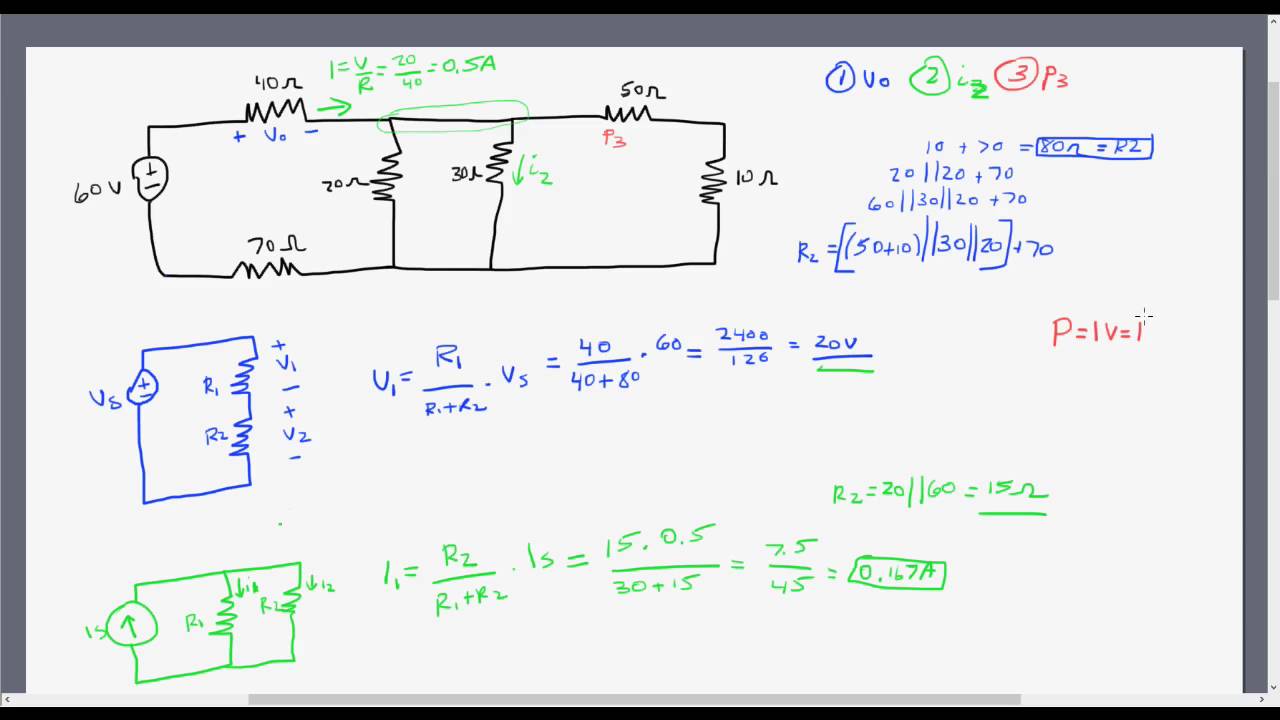 I=V/R=20/40=0.5A
① Vo ② i2 ③ P3
40Ω
+ Vo −
50Ω
P3
60V
+
−
20Ω
30Ω
↓i2
10Ω
70Ω
10 + 70 = 80Ω = R2
20||20 + 70
60||30||20 + 70
R2 = [(50+10)||30||20] + 70
P=IV=I
Vs
+
−
R1
R2
+
V1
−
+
V2
−
V1 = R1/(R1+R2) · Vs = 40/(40+80) · 60 = 2400/120 = 20V
R2 = 20||60 = 15Ω
Is
R1
↓i1
R2
↓i2
I1 = R2/(R1+R2) · Is = 15·0.5/(30+15) = 7.5/45 = 0.167A